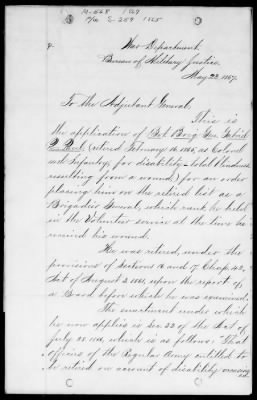 M-668 1867
P/w S-259 1865
War Department,
Bureau of Military Justice,
May 22, 1867.
To the Adjutant General,
This is
the application of Bvt. Brig. Gen. Gabriel
R. Paul (retired February 16, 1865, as Colonel
Infantry, for disability - total blindness
resulting from a wound,) for an order
placing him on the retired list as a
Brigadier General, which rank he held
in the Volunteer service at the time he
received his wound.
He was retired, under the
provisions of Sections 16 and 17, Chap. 42,
Act of August 3, 1861, upon the report of
a Board before which he was examined.
The enactment under which
he now applies is Sec. 32 of the Act of
July 28, 1866, which is as follows: "That
officers of the Regular Army entitled to
be retired on account of disability occasion-
ed